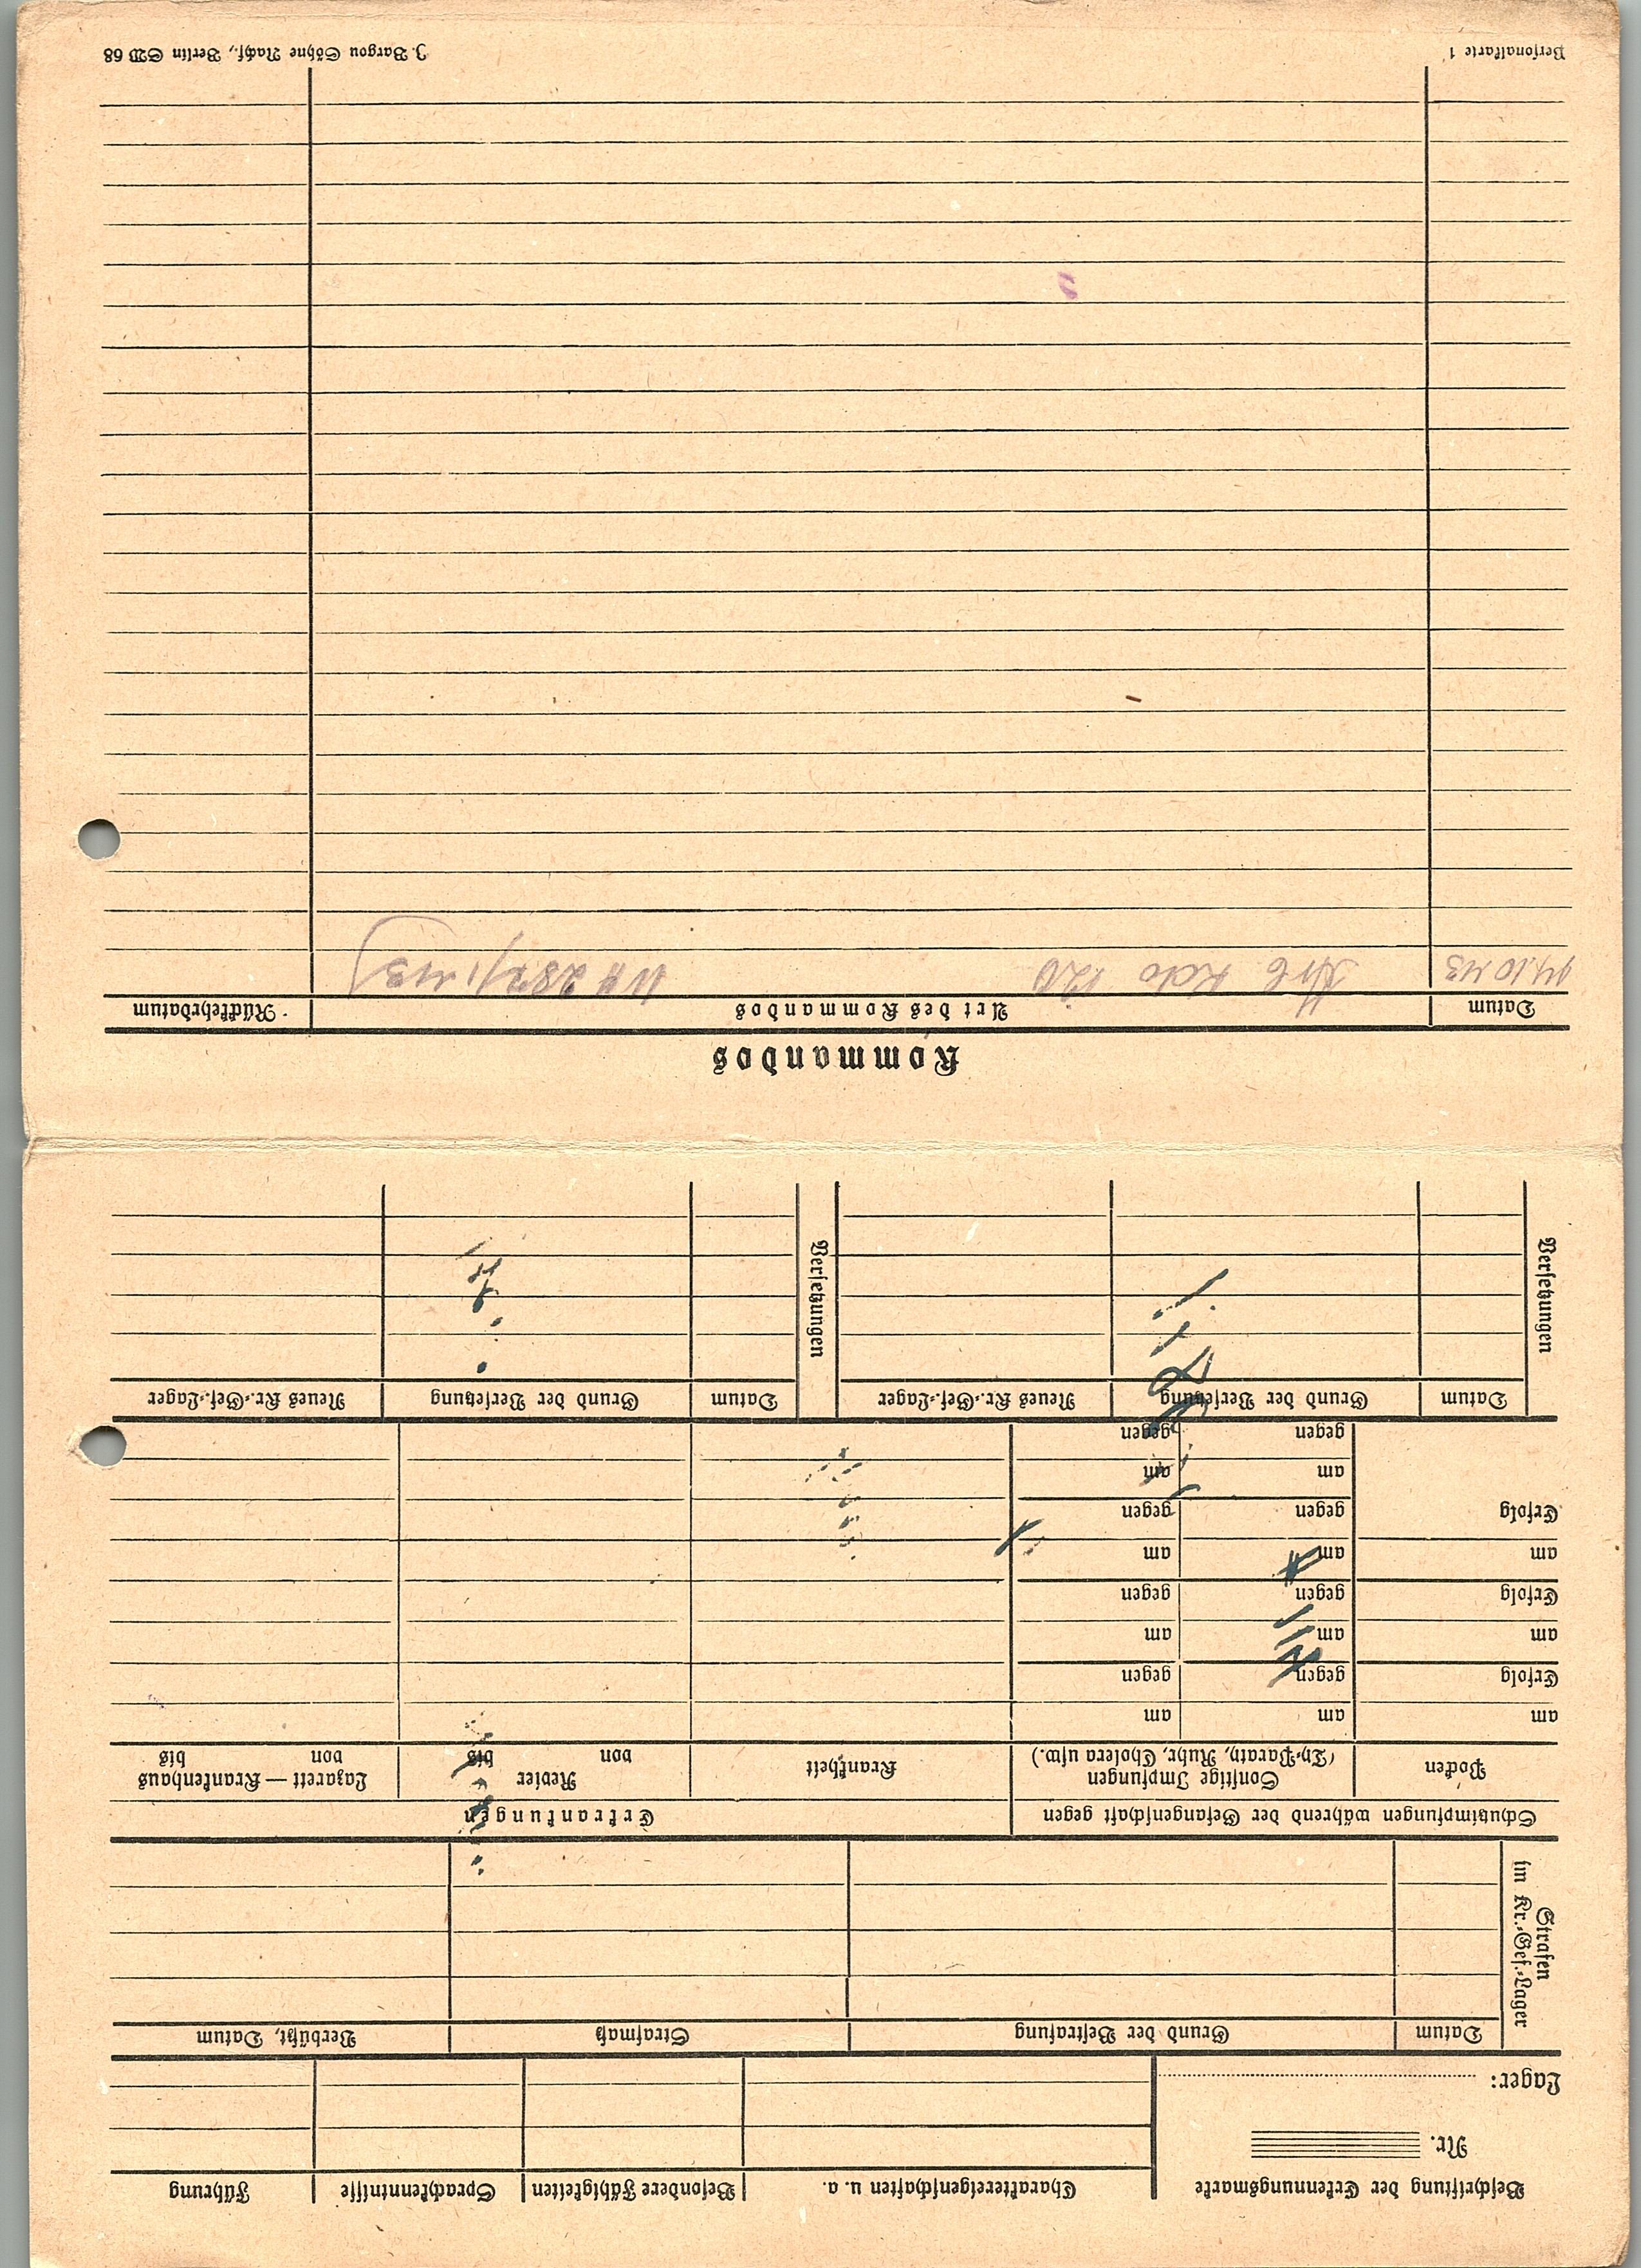 Beschriftung der Erkennungsmarke Charaktereigenschaften u. a. Besondere Fähigkeiten Sprachkenntnisse Führung
Nr.
Lager:
Strafen
im Kr.-Gef.-Lager
Datum Grund der Bestrafung Strafmaß Verbüßt, Datum
Schutzimpfungen während der Gefangenschaft gegen Erkrankungen
Pocken Sonstige Impfungen Krankheit Revier Lazarett — Krankenhaus
(Ty.-Paraty, Ruhr, Cholera usw.) von bis von bis
am am am
Erfolg gegen gegen
am am am
Erfolg gegen gegen
am am am
Erfolg gegen gegen
am am
gegen gegen
Versetzungen
Datum Grund der Versetzung Neues Kr.-Gef.-Lager
Versetzungen
Datum Grund der Versetzung Neues Kr.-Gef.-Lager
Kommandos
Datum Art des Kommandos Rückkehrdatum
14.10 43 Arb Kdo 120
Personalkarte 1 J. Bargou Söhne Nachf., Berlin SW 68